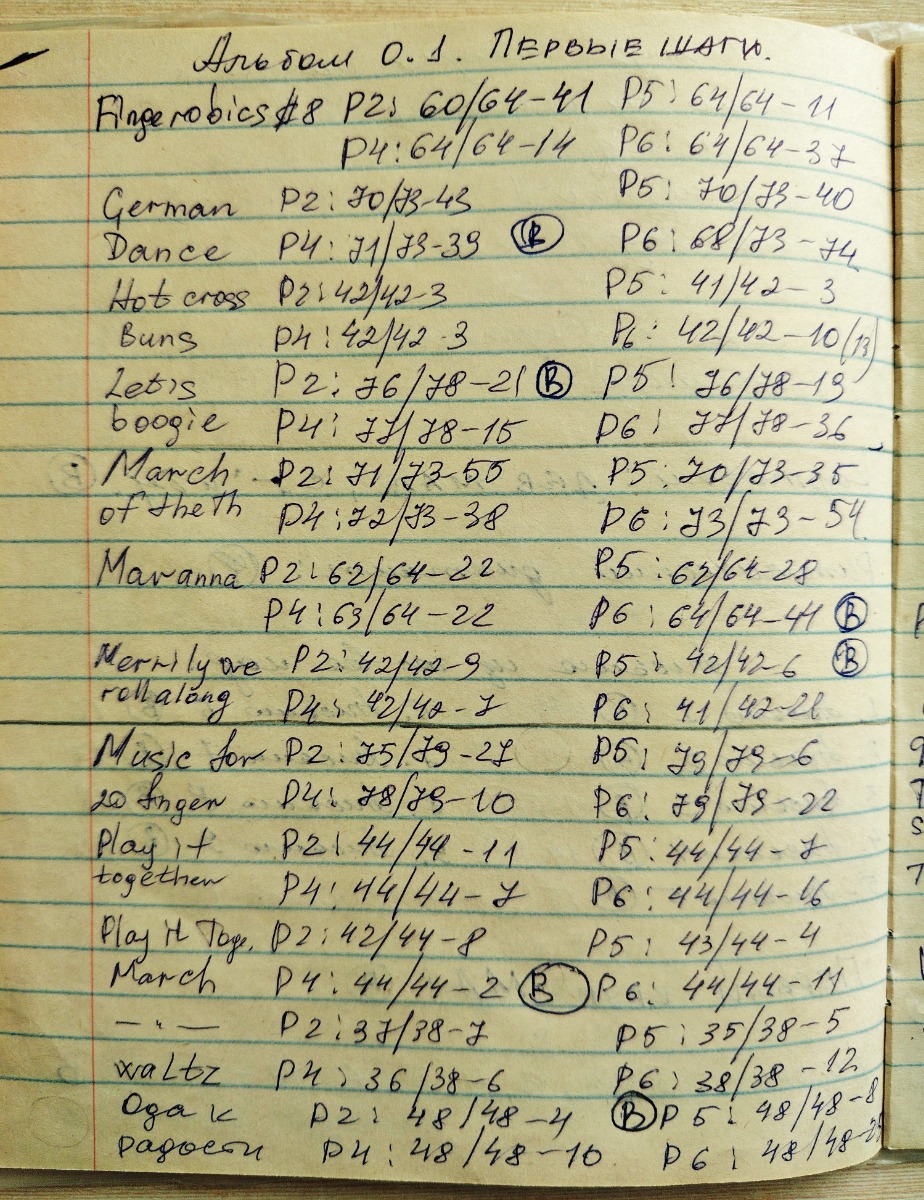 Альбом 0.1. Первые шаги.
Fingerobics #8 P2: 60/64-41 P5: 64/64-11
P4: 64/64-14 P6: 64/64-37
German P2: 70/73-43 P5: 70/73-40
Dance P4: 71/73-39 В P6: 68/73-74
Hot cross P2: 42/42-3 P5: 41/42-3
Buns P4: 42/42-3 P6: 42/42-10(13)
Let's P2: 76/78-21 В P5: 76/78-19
boogie P4: 77/78-15 P6: 77/78-36
March P2: 71/73-55 P5: 70/73-35
of the th P4: 72/73-38 P6: 73/73-54
Maranna P2: 62/64-22 P5: 62/64-28
P4: 63/64-22 P6: 64/64-41 В
Merrily we P2: 42/42-9 P5: 42/42-6 В
roll along P4: 42/42-7 P6: 41/42-21
Music for P2: 75/79-27 P5: 79/79-6
20 finger P4: 78/79-10 P6: 79/79-22
Play it P2: 44/44-11 P5: 44/44-7
together P4: 44/44-7 P6: 44/44-16
Play it Toge. P2: 42/44-8 P5: 43/44-4
March P4: 44/44-2 В P6: 44/44-11
—"— P2: 37/38-7 P5: 35/38-5
waltz P4: 36/38-6 P6: 38/38-12
Ода к P2: 48/48-4 В P5: 48/48-8
радости P4: 48/48-10 P6: 48/48-